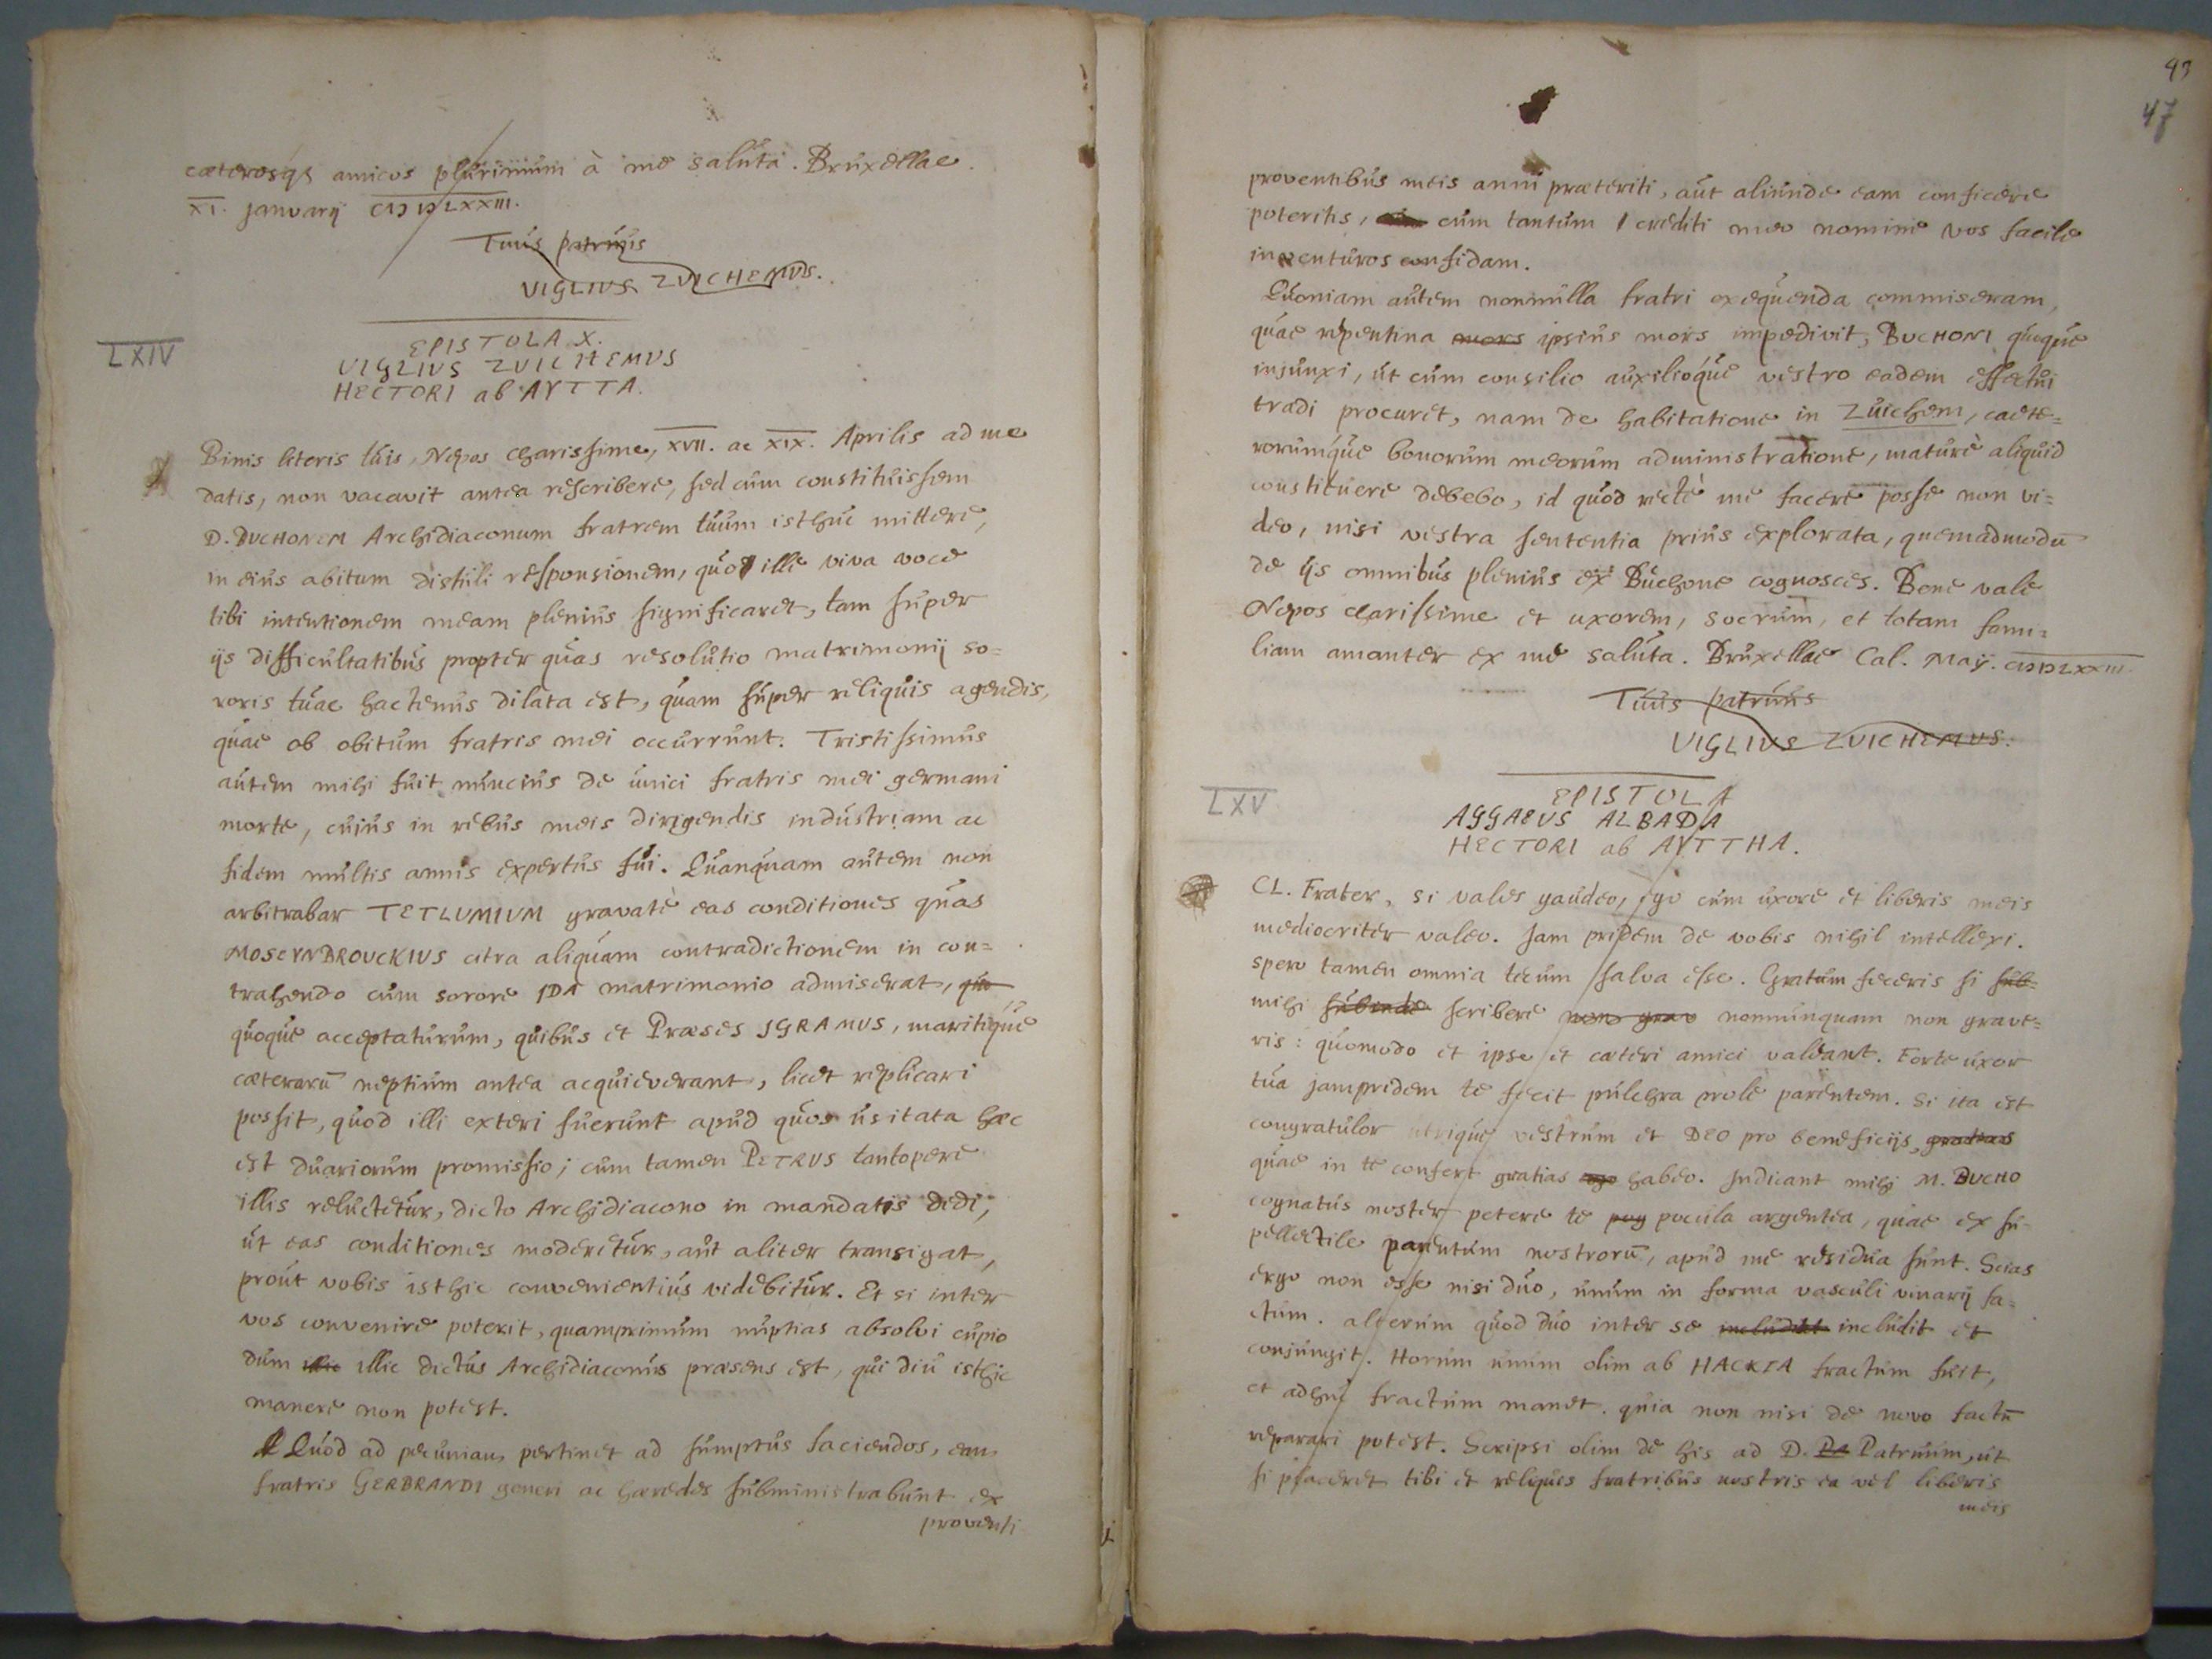 cæterosqs amicos plurimum à me saluta. Bruxellae
XI. january CIƆIƆLXXIII.
Tuus patruus
VIGLIUS ZVICHEMUS.
EPISTOLA X.
LXIV
VIGLIVS ZVICHEMVS
HECTORI ab AYTTA.
Binis literis tuis, Nepos charissime, XVII. ac XIX. Aprilis ad me
datis, non vacavit antea rescribere, sed cum constituissem
D. BUCHONEM Archidiaconum fratrem tuum isthuc mittere,
in eius abitum distuli responsionem, quo ille viva voce
tibi intentionem meam plenius significaret, tam super
ijs difficultatibus propter quas resolutio matrimonij so=
roris tuae hactenus dilata est, quam super reliquis agendis,
quae ob obitum fratris mei occurrunt. Tristissimus
autem mihi fuit nuncius de unici fratris mei germani
morte, cuius in rebus meis dirigendis industriam ac
fidem multis annis expertus fui. Quanquam autem non
arbitrabar TETLUMIUM gravatè eas conditiones quas
MOSEYNBROUCKIUS citra aliquam contradictionem in con=
trahendo cum sorore IDA matrimonio admiserat,
quoque acceptaturum, quibus et Præses IGRAMUS, maritique
cæterarū neptium antea acquieverant, licet replicari
possit, quod illi exteri fuerunt apud quos usitata hæc
est duariorum promissio; cum tamen PETRUS tantopere
illis reluctetur, dicto Archidiacono in mandatis dedi,
ut eas conditiones moderetur, aut aliter transigat,
prout vobis isthic convenientius videbitur. Et si inter
vos convenire poterit, quamprimum nuptias absolvi cupio
dum illic illic dictus Archidiaconus præsens est, qui diu isthic
manere non potest.
Quod ad pecuniam pertinet ad sumptus faciendos, eam
fratris GERBRANDI generi ac hæredes subministrabunt ex
proventi
93
47
proventibus meis anni præteriti, aut aliunde eam conficere
poteritis, cum tantum crediti meo nomine vos facile
inventuros confidam.
Quoniam autem nonnulla fratri exequenda commiseram,
quae repentina mors ipsius mors impedivit, BUCHONI quoque
injunxi, ut cum consilio auxilioque vestro eadem effectui
tradi procuret, nam de habitatione in Zuichem, caete=
rorumque bonorum meorum administratione, maturè aliquid
constituere debebo, id quod recte me facere posse non vi=
deo, nisi vestra sententia prius explorata, quemadmodū
de ijs omnibus plenius ex Buchone cognosces. Bene vale
Nepos clarissime et uxorem, socrum, et totam fami=
liam amanter ex me saluta. Bruxellae Cal. Maÿ. CIƆIƆLXXIII.
Tuus patruus
VIGLIUS ZVICHEMUS.
EPISTOLA
LXV
AGGAEUS ALBADA
HECTORI ab AYTTHA.
CL. Frater, si vales gaudeo, ego cum uxore et liberis meis
mediocriter valeo. Jam pridem de vobis nihil intellexi.
spero tamen omnia tecum salva esse. Gratum feceris si sub-
mihi subinde scribere non grav nonnunquam non grave=
ris: quomodo et ipse et cæteri amici valeant. Forte uxor
tua jampridem te fecit pulchra prole parentem. Si ita est
congratulor utrique vestrum et DEO pro beneficijs, gratias
quae in te confert gratias ago habeo. Indicant mihi M. BUCHO
cognatus noster petere te pocula argentea, quae ex su=
pellectile parentum nostrorū, apud me residua sunt. Scias
ergo non esse nisi duo, unum in forma vasculi vinarij fa=
ctum. alterum quod duo inter se includit et
conjungit. Horum unum olim ab HACKIA fractum fuit,
et adhuc fractum manet. quia non nisi de novo factū
reparari potest. Scripsi olim de his ad D. Pa Patruum, ut
si placeret tibi et reliquis fratribus nostris ea vel liberis
meis